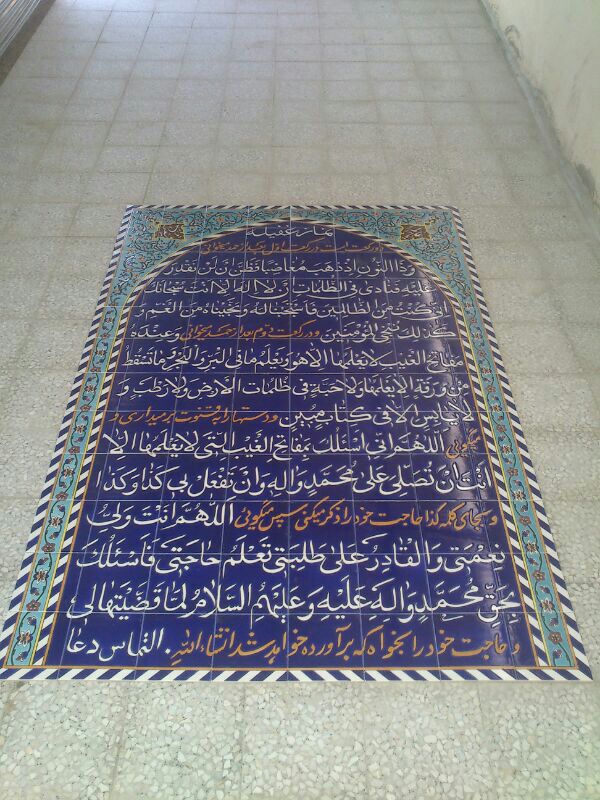 نماز غفیله
دو رکعت است در رکعت اول بعد از حمد میخوانی
وذا النون اذ ذهب مغاضبا فظن ان لن نقدر
علیه فنادی فی الظلمات ان لا اله الا انت سبحانک
انی کنت من الظالمین فاستجبنا له و نجیناه من الغم و
کذلک ننجی المؤمنین و در رکعت دوم بعد از حمد میخوانی و عنده
مفاتح الغیب لا یعلمها الا هو و یعلم ما فی البر و البحر و ما تسقط
من ورقة الا یعلمها ولا حبة فی ظلمات الارض ولا رطب و
لا یابس الا فی کتاب مبین و دستها را بقنوت برمیداری و
میگوئی اللهم انی اسئلک بمفاتح الغیب التی لا یعلمها الا
انت ان تصلی علی محمد و اله و ان تفعل بی کذا و کذا
و بجای کلمه کذا حاجت خود را ذکر میکنی سپس میگوئی اللهم انت ولی
نعمتی و القادر علی طلبتی تعلم حاجتی فاسئلک
بحق محمد و اله علیه و علیهم السلام لما قضیتها لی
و حاجت خود را بخواه که برآورده خواهد شد انشاءالله. التماس دعا